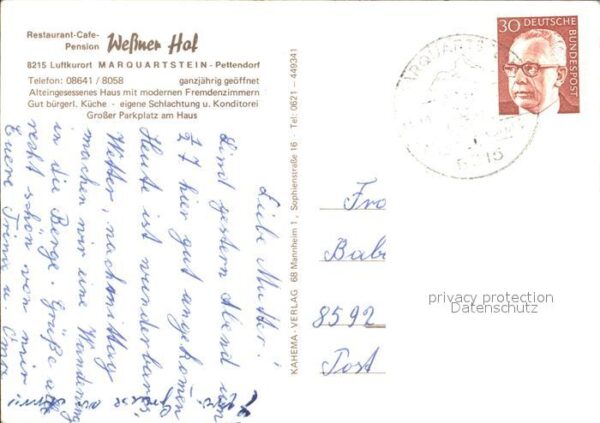 Restaurant-Cafe-
Pension Weßner Hof
8215 Luftkurort MARQUARTSTEIN - Pettendorf
Telefon: 08641 / 8058 ganzjährig geöffnet
Alteingesessenes Haus mit modernen Fremdenzimmern
Gut bürgerl. Küche - eigene Schlachtung u. Konditorei
Großer Parkplatz am Haus
Liebe Mutter!
Sind gestern Abend um
7 hier gut angekommen
Heute ist wunderbares
Wetter, nachmittag
machen wir eine Wanderung
in die Berge. Grüße
recht schön von mir
Euere u.
KAHEMA-VERLAG 68 Mannheim 1, Sophienstraße 16 - Tel: 0621 - 449341
30 DEUTSCHE
BUNDESPOST
MARQUARTSTEIN
8215
Fra
Bab
8592
Post
privacy protection
Datenschutz